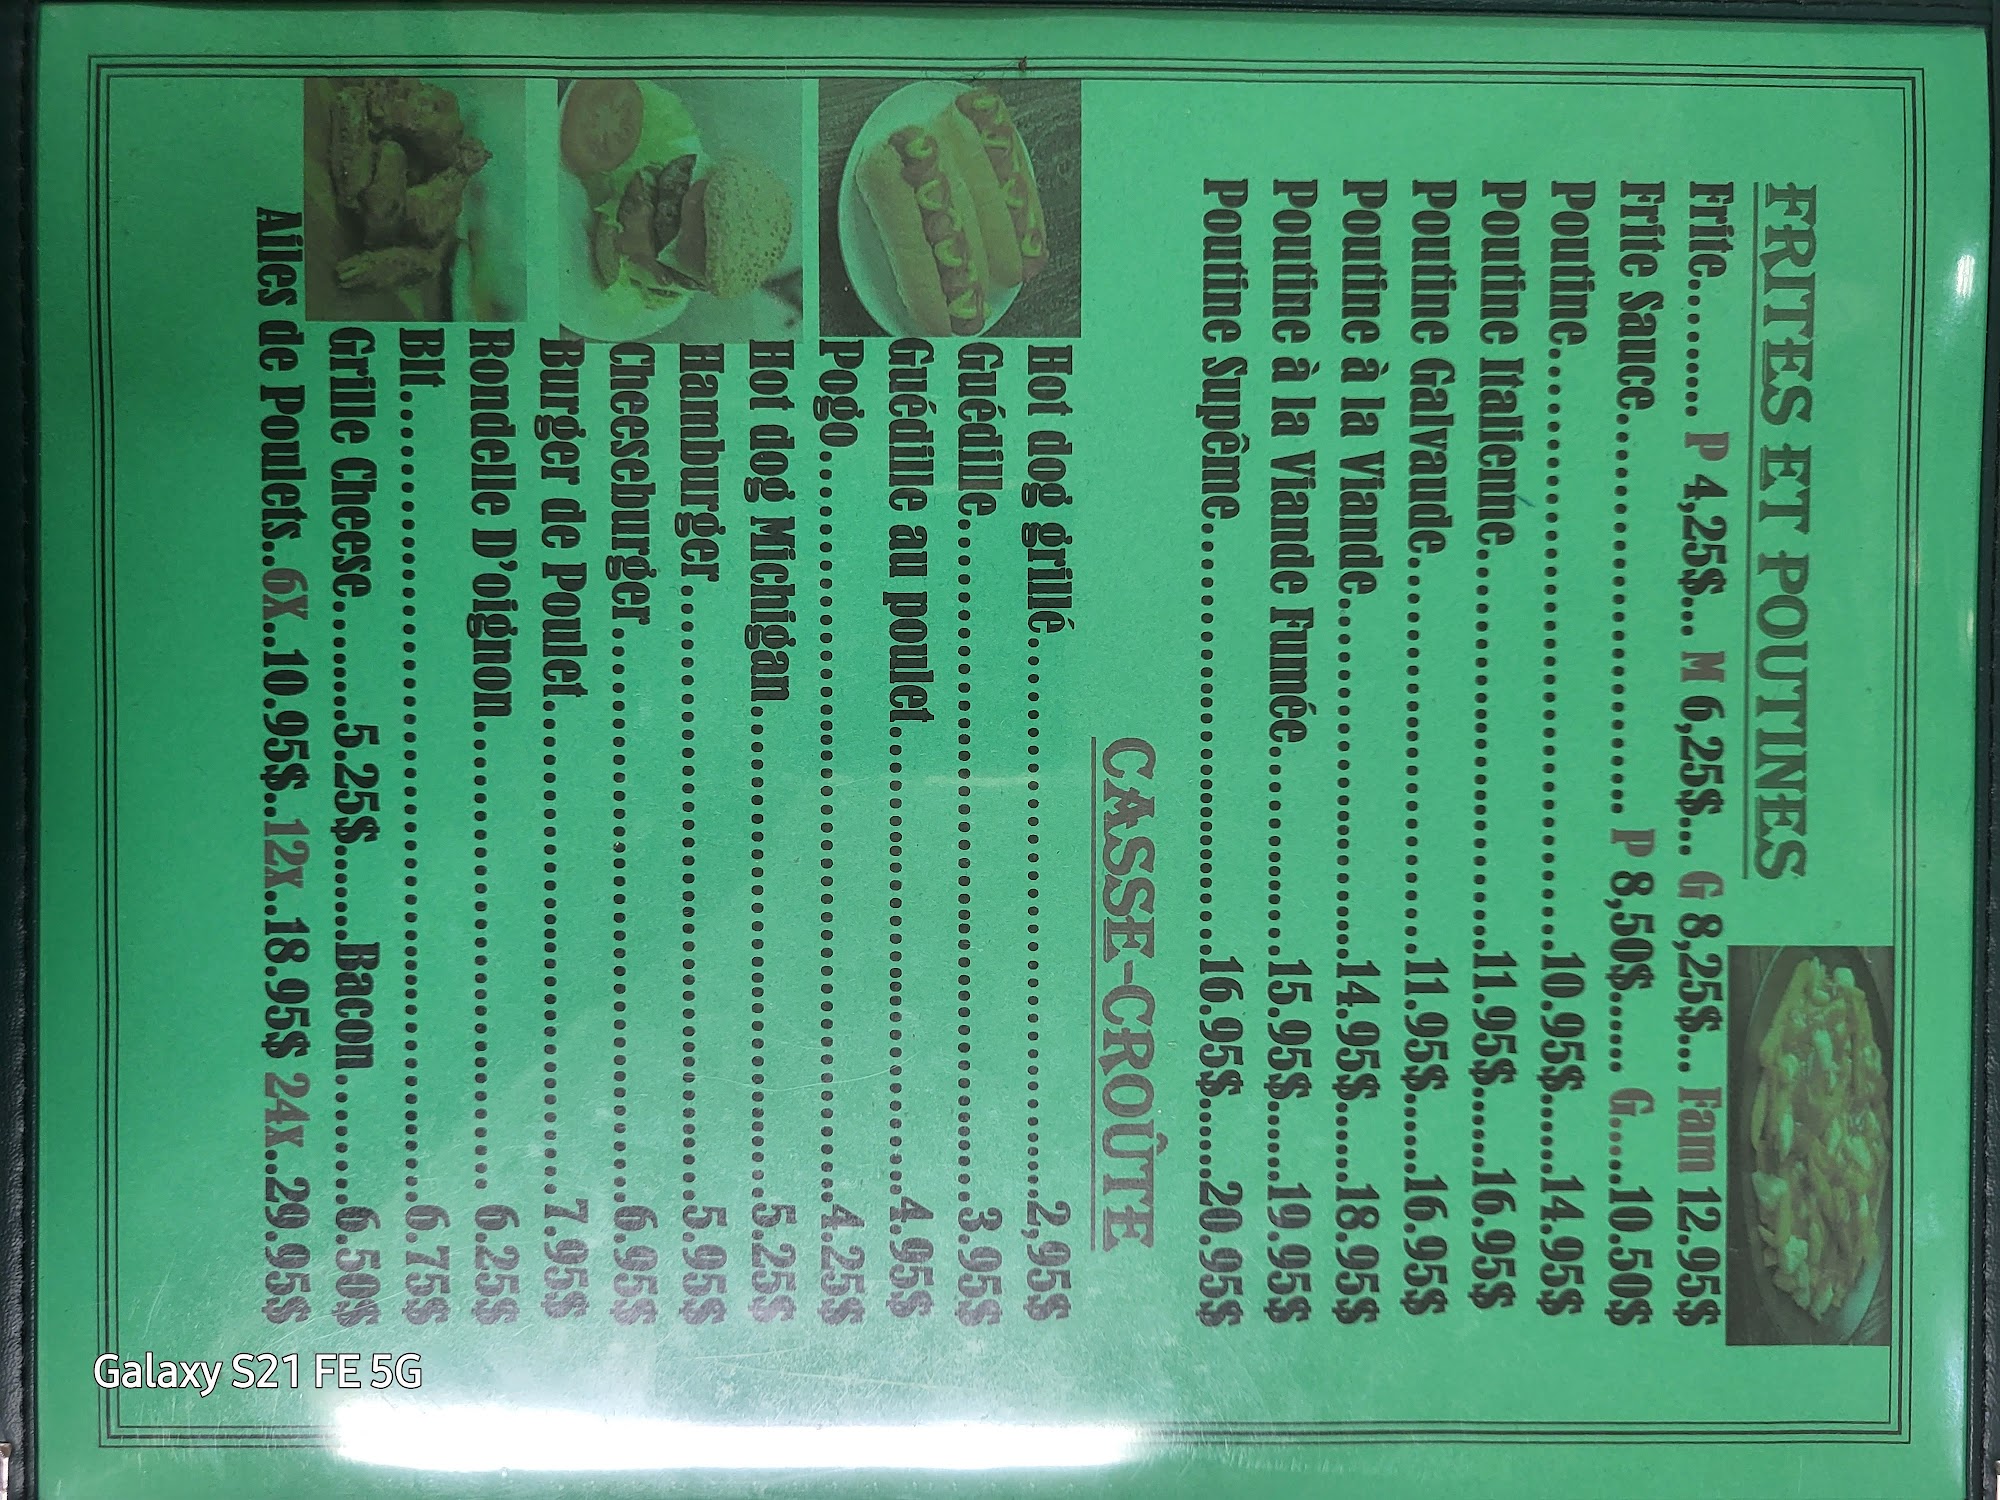 FRITES ET POUTINES
Frite......... P 4,25$... M 6,25$... G 8,25$... Fam 12.95$
Frite Sauce................................. P 8,50$...... G.....10.50$
Poutine.............................................10.95$......14.95$
Poutine Italienne..............................11.95$......16.95$
Poutine Galvaude.............................11.95$......16.95$
Poutine à la Viande..........................14.95$......18.95$
Poutine à la Viande Fumée...............15.95$......19.95$
Poutine Supême................................16.95$......20.95$
CASSE-CROÛTE
Hot dog grillé..........................................2,95$
Guédille..................................................3.95$
Guédille au poulet..................................4.95$
Pogo.......................................................4.25$
Hot dog Michigan...................................5.25$
Hamburger.............................................5.95$
Cheeseburger.........................................6.95$
Burger de Poulet....................................7.95$
Rondelle D'oignon.................................. 6.25$
Blt..........................................................6.75$
Grille Cheese..........5.25$.........Bacon..........6.50$
Ailes de Poulets..6X..10.95$..12x..18.95$ 24x..29.95$
Galaxy S21 FE 5G